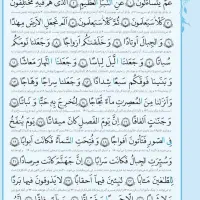 عَمَّ يَتَسَاءَلُونَ ۝ عَنِ النَّبَإِ الْعَظِيمِ ۝ الَّذِي هُمْ فِيهِ مُخْتَلِفُونَ
۝ كَلَّا سَيَعْلَمُونَ ۝ ثُمَّ كَلَّا سَيَعْلَمُونَ ۝ أَلَمْ نَجْعَلِ الْأَرْضَ مِهَادًا
۝ وَالْجِبَالَ أَوْتَادًا ۝ وَخَلَقْنَاكُمْ أَزْوَاجًا ۝ وَجَعَلْنَا نَوْمَكُمْ
سُبَاتًا ۝ وَجَعَلْنَا اللَّيْلَ لِبَاسًا ۝ وَجَعَلْنَا النَّهَارَ مَعَاشًا
۝ وَبَنَيْنَا فَوْقَكُمْ سَبْعًا شِدَادًا ۝ وَجَعَلْنَا سِرَاجًا وَهَّاجًا ۝
وَأَنْزَلْنَا مِنَ الْمُعْصِرَاتِ مَاءً ثَجَّاجًا ۝ لِنُخْرِجَ بِهِ حَبًّا وَنَبَاتًا ۝
وَجَنَّاتٍ أَلْفَافًا ۝ إِنَّ يَوْمَ الْفَصْلِ كَانَ مِيقَاتًا ۝ يَوْمَ يُنْفَخُ
فِي الصُّورِ فَتَأْتُونَ أَفْوَاجًا ۝ وَفُتِحَتِ السَّمَاءُ فَكَانَتْ أَبْوَابًا ۝
وَسُيِّرَتِ الْجِبَالُ فَكَانَتْ سَرَابًا ۝ إِنَّ جَهَنَّمَ كَانَتْ مِرْصَادًا ۝
لِلطَّاغِينَ مَآبًا ۝ لَابِثِينَ فِيهَا أَحْقَابًا ۝ لَا يَذُوقُونَ فِيهَا بَرْدًا